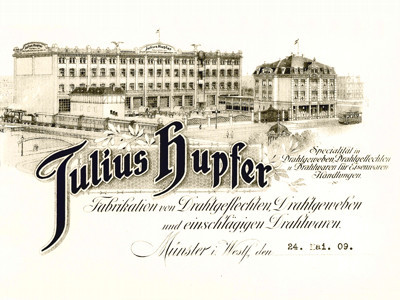 Julius Hupfer
Spezialität in
Drahtgeweben, Drahtgeflechten
u. Drahtwaren für Eisenwaren
Handlungen.
Fabrikation von Drahtgeflechten, Drahtgeweben
und einschlägigen Drahtwaren.
Münster i. Westf., den 24. Mai. 09.